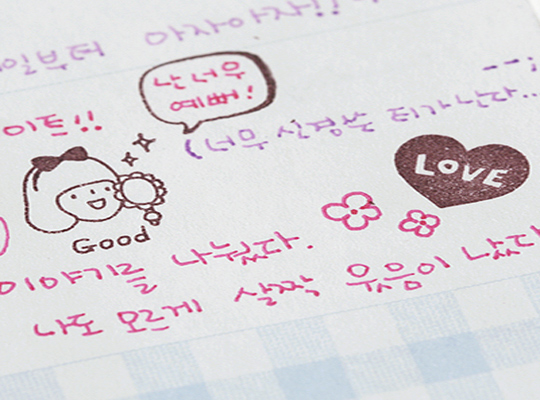 일부터 아자아자!!
난 너무
예뻐!
이트!!
(너무 신경쓴 티가 난다..
--;
LOVE
Good
이야기를 나눴다.
나도 모르게 살짝 웃음이 났다